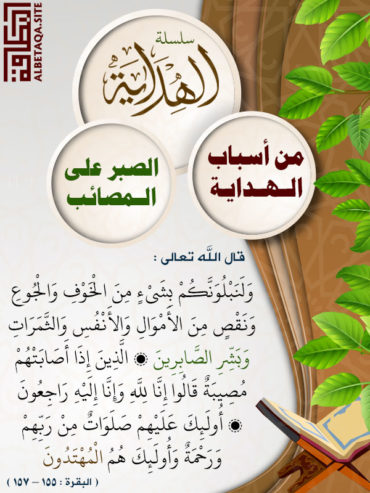 ALBETAQA.SITE
سلسلة
الهداية
من أسباب
الـهـدايـة
الصبر على
الـمصائب
قال الله تعالى :
وَلَنَبْلُوَنَّكُمْ بِشَيْءٍ مِنَ الْخَوْفِ وَالْجُوعِ
وَنَقْصٍ مِنَ الْأَمْوَالِ وَالْأَنْفُسِ وَالثَّمَرَاتِ
وَبَشِّرِ الصَّابِرِينَ ۞ الَّذِينَ إِذَا أَصَابَتْهُمْ
مُصِيبَةٌ قَالُوا إِنَّا لِلَّهِ وَإِنَّا إِلَيْهِ رَاجِعُونَ
۞ أُولَئِكَ عَلَيْهِمْ صَلَوَاتٌ مِنْ رَبِّهِمْ
وَرَحْمَةٌ وَأُولَئِكَ هُمُ الْمُهْتَدُونَ
( البقرة : ١٥٥ – ١٥٧ )